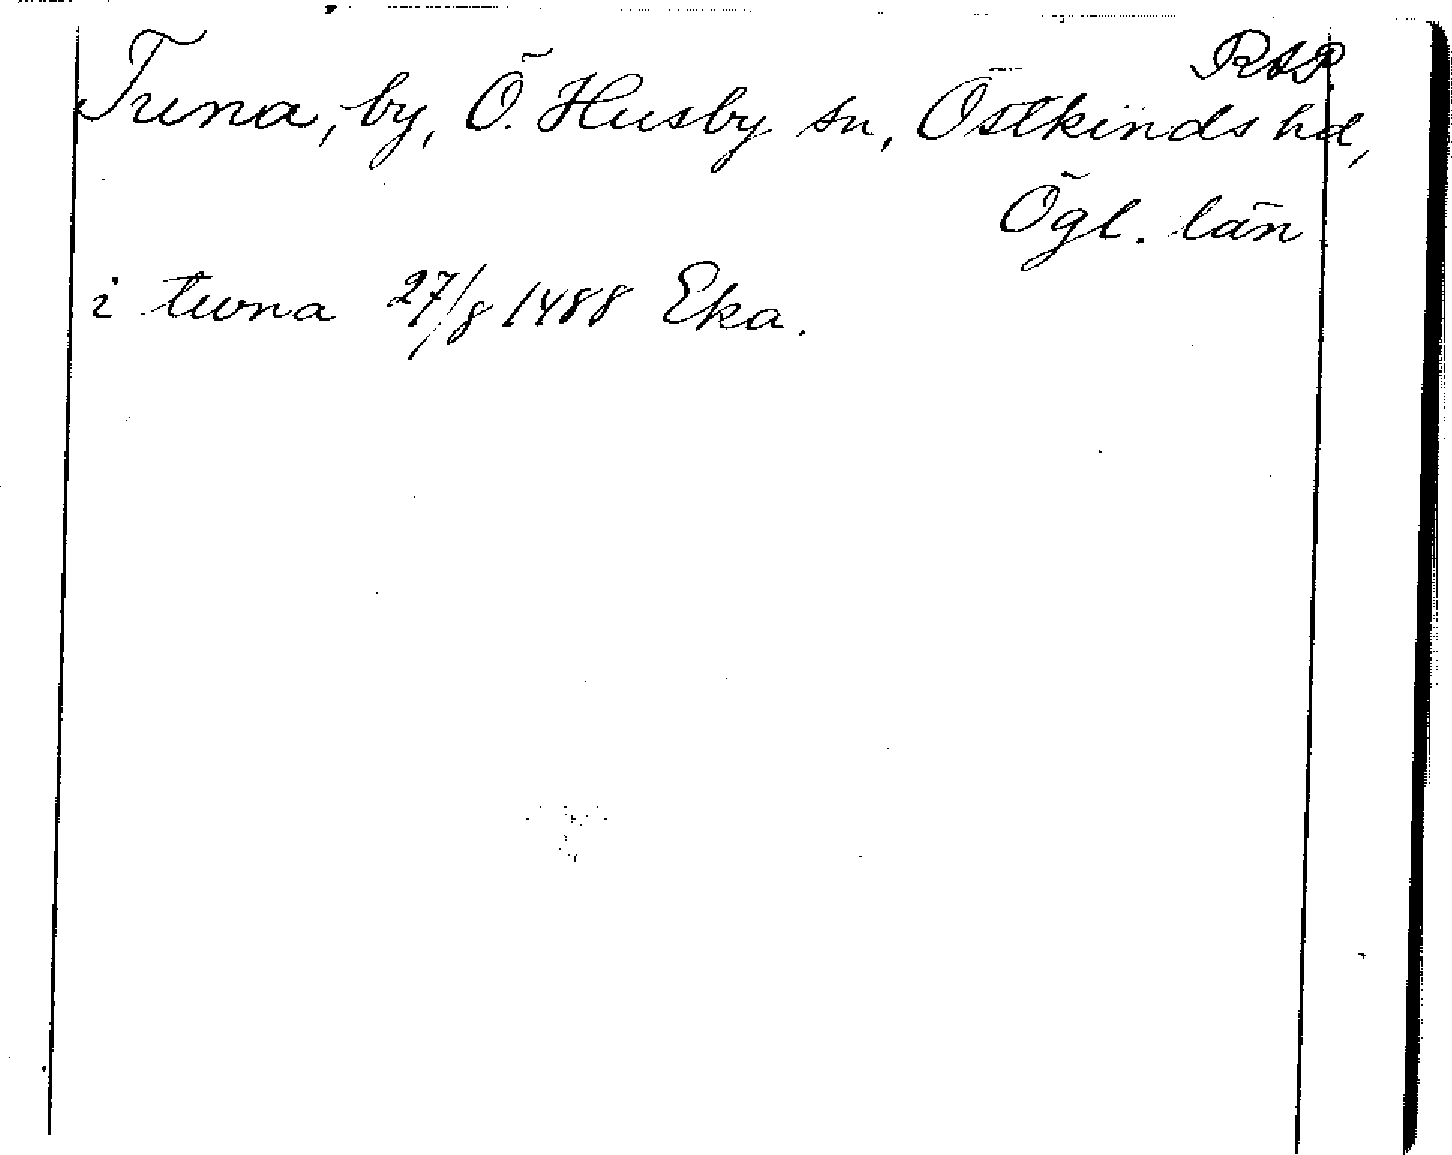 RAP
Tuna, by, Ö. Husby sn, Östkinds hd,
Ögl. län
i tuna 27/8 1488 Eka.